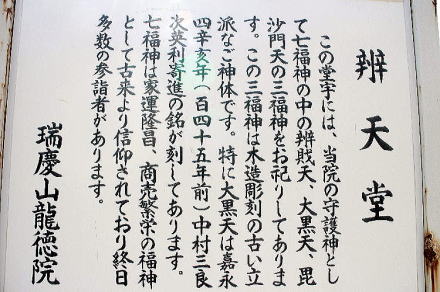 辨天堂
この堂宇には、当院の守護神とし
て七福神の中の辨財天、大黒天、毘
沙門天の三福神をお祀りしてありま
す。この三福神は木造彫刻の古い立
派なご神体です。特に大黒天は嘉永
四辛亥年(百四十五年前)中村三良
次英利寄進の銘が刻してあります。
七福神は家運隆昌、商売繁栄の福神
として古来より信仰されており終日
多数の参詣者があります。
瑞慶山龍徳院